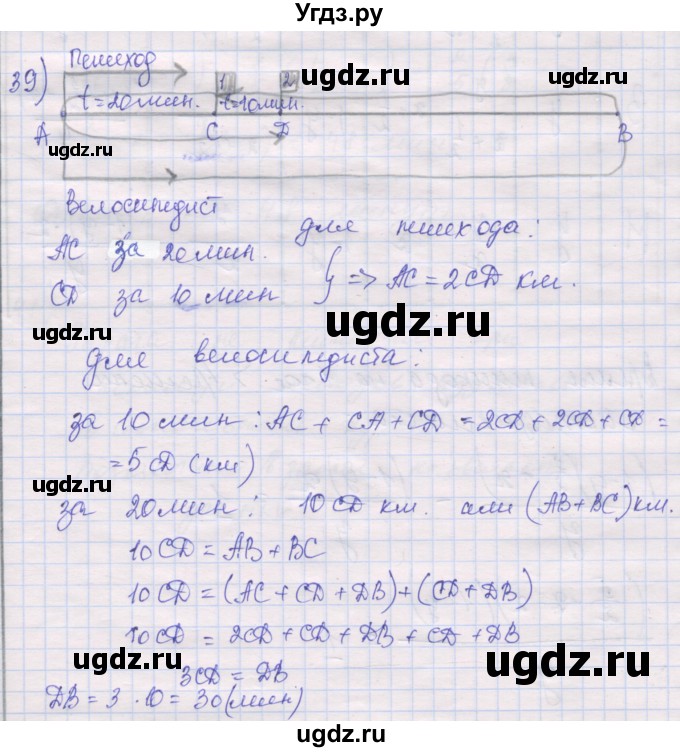 Угдз.ру
39) Пешеход
t=20мин. 1 t=10мин. 2
ugdz.ru
A C D B
ugdz.ru
ugdz.ru
Велосипедист
для пешехода:
AC за 20мин.
CD за 10мин } => AC = 2CD км.
ugdz.ru
ugdz.ru
для велосипедиста:
ugdz.ru
за 10мин: AC + CA + CD = 2CD + 2CD + CD =
= 5CD (км)
ugdz.ru
ugdz.ru
за 20мин: 10CD км. или (AB+BC)км.
10CD = AB + BC
ugdz.ru
10CD = (AC + CD + DB) + (CD + DB)
10CD = 2CD + CD + DB + CD + DB
ugdz.ru
ugdz.ru
3CD = DB
DB = 3 · 10 = 30(мин)
ugdz.ru